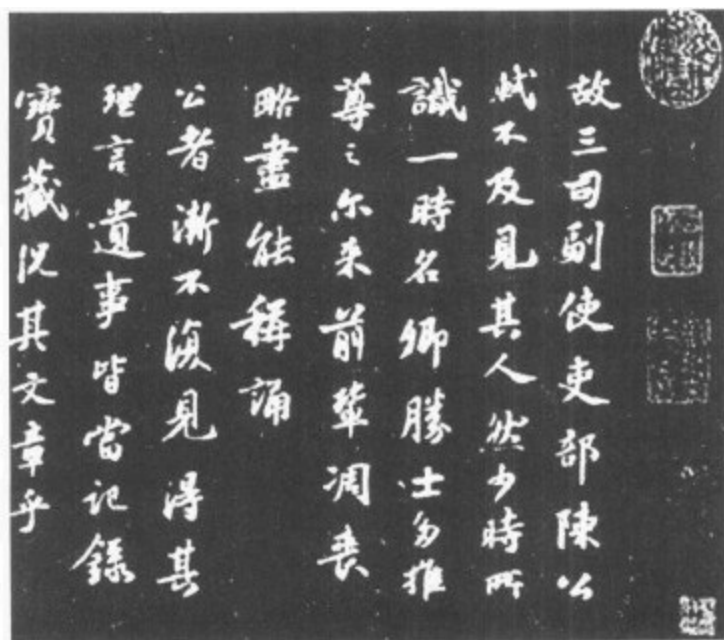 故三司副使吏部陳公
軾不及見其人然少時所
識一時名卿勝士多推
尊之尓来前輩凋喪
略盡能稱誦
公者漸不復見得其
理言遺事皆當記錄
寶藏况其文章乎